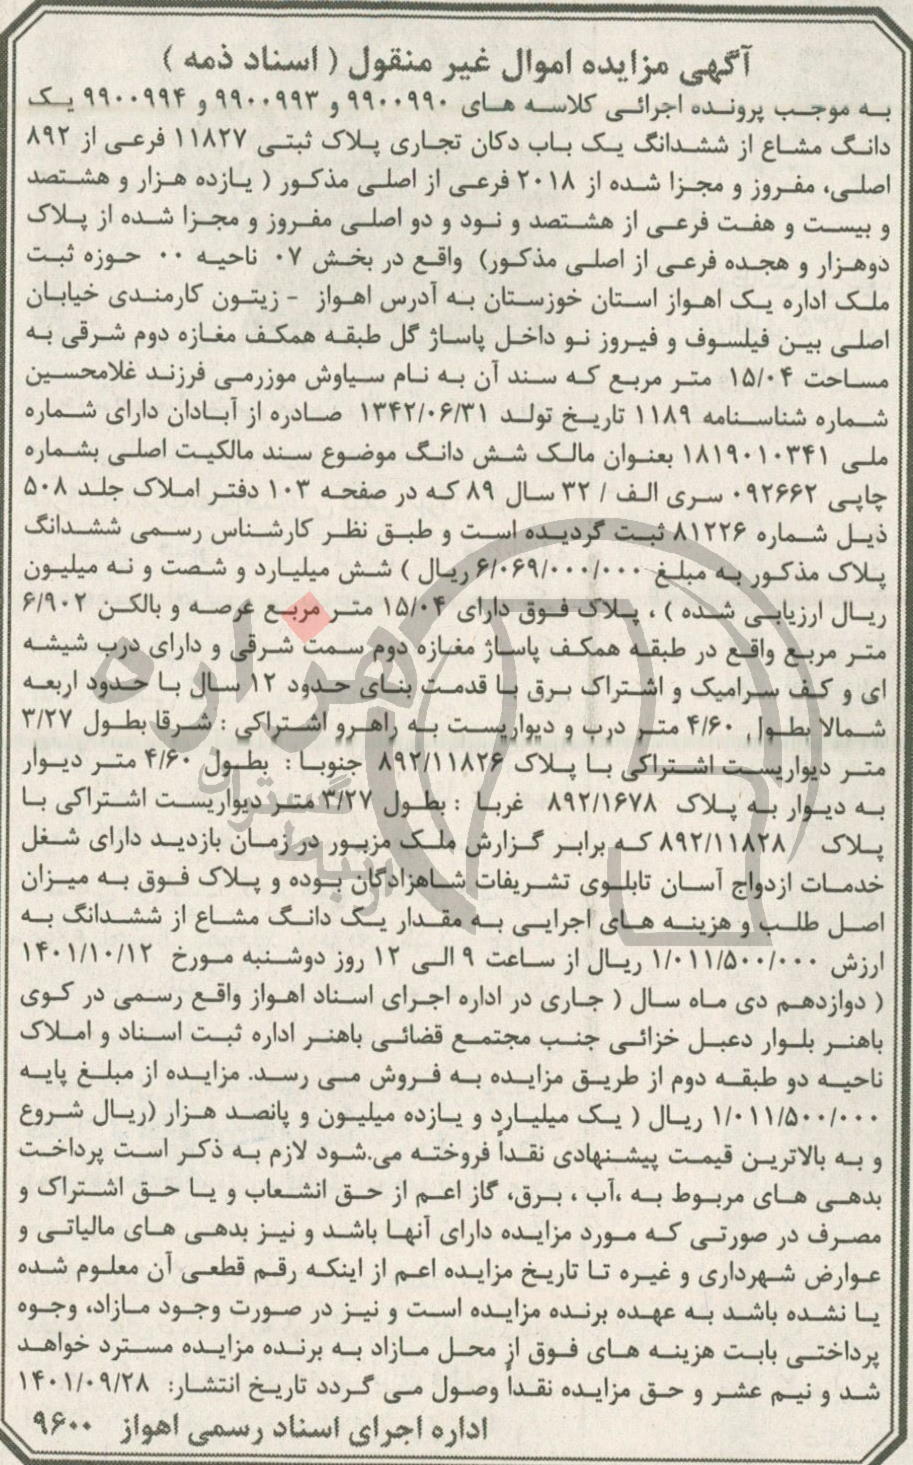 آگهی مزایده اموال غیر منقول ( اسناد ذمه )
به موجب پرونده اجرائی کلاسه های ۹۹۰۰۹۹۰ و ۹۹۰۰۹۹۳ و ۹۹۰۰۹۹۴ یک
دانگ مشاع از ششدانگ یک باب دکان تجاری پلاک ثبتی ۱۱۸۲۷ فرعی از ۸۹۲
اصلی، مفروز و مجزا شده از ۲۰۱۸ فرعی از اصلی مذکور ( یازده هزار و هشتصد
و بیست و هفت فرعی از هشتصد و نود و دو اصلی مفروز و مجزا شده از پلاک
دوهزار و هجده فرعی از اصلی مذکور) واقع در بخش ۰۷ ناحیه ۰۰ حوزه ثبت
ملک اداره یک اهواز استان خوزستان به آدرس اهواز - زیتون کارمندی خیابان
اصلی بین فیلسوف و فیروز نو داخل پاساژ گل طبقه همکف مغازه دوم شرقی به
مساحت ۱۵/۰۴ متر مربع که سند آن به نام سیاوش موزرمی فرزند غلامحسین
شماره شناسنامه ۱۱۸۹ تاریخ تولد ۱۳۴۲/۰۶/۳۱ صادره از آبادان دارای شماره
ملی ۱۸۱۹۰۱۰۳۴۱ بعنوان مالک شش دانگ موضوع سند مالکیت اصلی بشماره
چاپی ۰۹۲۶۶۲ سری الف / ۳۲ سال ۸۹ که در صفحه ۱۰۳ دفتر املاک جلد ۵۰۸
ذیل شماره ۸۱۲۲۶ ثبت گردیده است و طبق نظر کارشناس رسمی ششدانگ
پلاک مذکور به مبلغ ۶/۰۶۹/۰۰۰/۰۰۰ ریال ) شش میلیارد و شصت و نه میلیون
ریال ارزیابی شده ) ، پلاک فوق دارای ۱۵/۰۴ متر مربع عرصه و بالکن ۶/۹۰۲
متر مربع واقع در طبقه همکف پاساژ مغازه دوم سمت شرقی و دارای درب شیشه
ای و کف سرامیک و اشتراک برق با قدمت بنای حدود ۱۲ سال با حدود اربعه
شمالا بطول ۴/۶۰ متر درب و دیواریست به راهرو اشتراکی : شرقا بطول ۳/۲۷
متر دیواریست اشتراکی با پلاک ۸۹۲/۱۱۸۲۶ جنوبا : بطول ۴/۶۰ متر دیوار
به دیوار به پلاک ۸۹۲/۱۶۷۸ غربا : بطول ۳/۲۷ متر دیواریست اشتراکی با
پلاک ۸۹۲/۱۱۸۲۸ که برابر گزارش ملک مزبور در زمان بازدید دارای شغل
خدمات ازدواج آسان تابلوی تشریفات شاهزادگان بوده و پلاک فوق به میزان
اصل طلب و هزینه های اجرایی به مقدار یک دانگ مشاع از ششدانگ به
ارزش ۱/۰۱۱/۵۰۰/۰۰۰ ریال از ساعت ۹ الی ۱۲ روز دوشنبه مورخ ۱۴۰۱/۱۰/۱۲
( دوازدهم دی ماه سال ( جاری در اداره اجرای اسناد اهواز واقع رسمی در کوی
باهنر بلوار دعبل خزائی جنب مجتمع قضائی باهنر اداره ثبت اسناد و املاک
ناحیه دو طبقه دوم از طریق مزایده به فروش می رسد. مزایده از مبلغ پایه
۱/۰۱۱/۵۰۰/۰۰۰ ریال ( یک میلیارد و یازده میلیون و پانصد هزار (ریال شروع
و به بالاترین قیمت پیشنهادی نقداً فروخته می.شود لازم به ذکر است پرداخت
بدهی های مربوط به ،آب ، برق، گاز اعم از حق انشعاب و یا حق اشتراک و
مصرف در صورتی که مورد مزایده دارای آنها باشد و نیز بدهی های مالیاتی و
عوارض شهرداری و غیره تا تاریخ مزایده اعم از اینکه رقم قطعی آن معلوم شده
یا نشده باشد به عهده برنده مزایده است و نیز در صورت وجود مازاد، وجوه
پرداختی بابت هزینه های فوق از محل مازاد به برنده مزایده مسترد خواهد
شد و نیم عشر و حق مزایده نقداً وصول می گردد تاریخ انتشار: ۱۴۰۱/۰۹/۲۸
اداره اجرای اسناد رسمی اهواز ۹۶۰۰